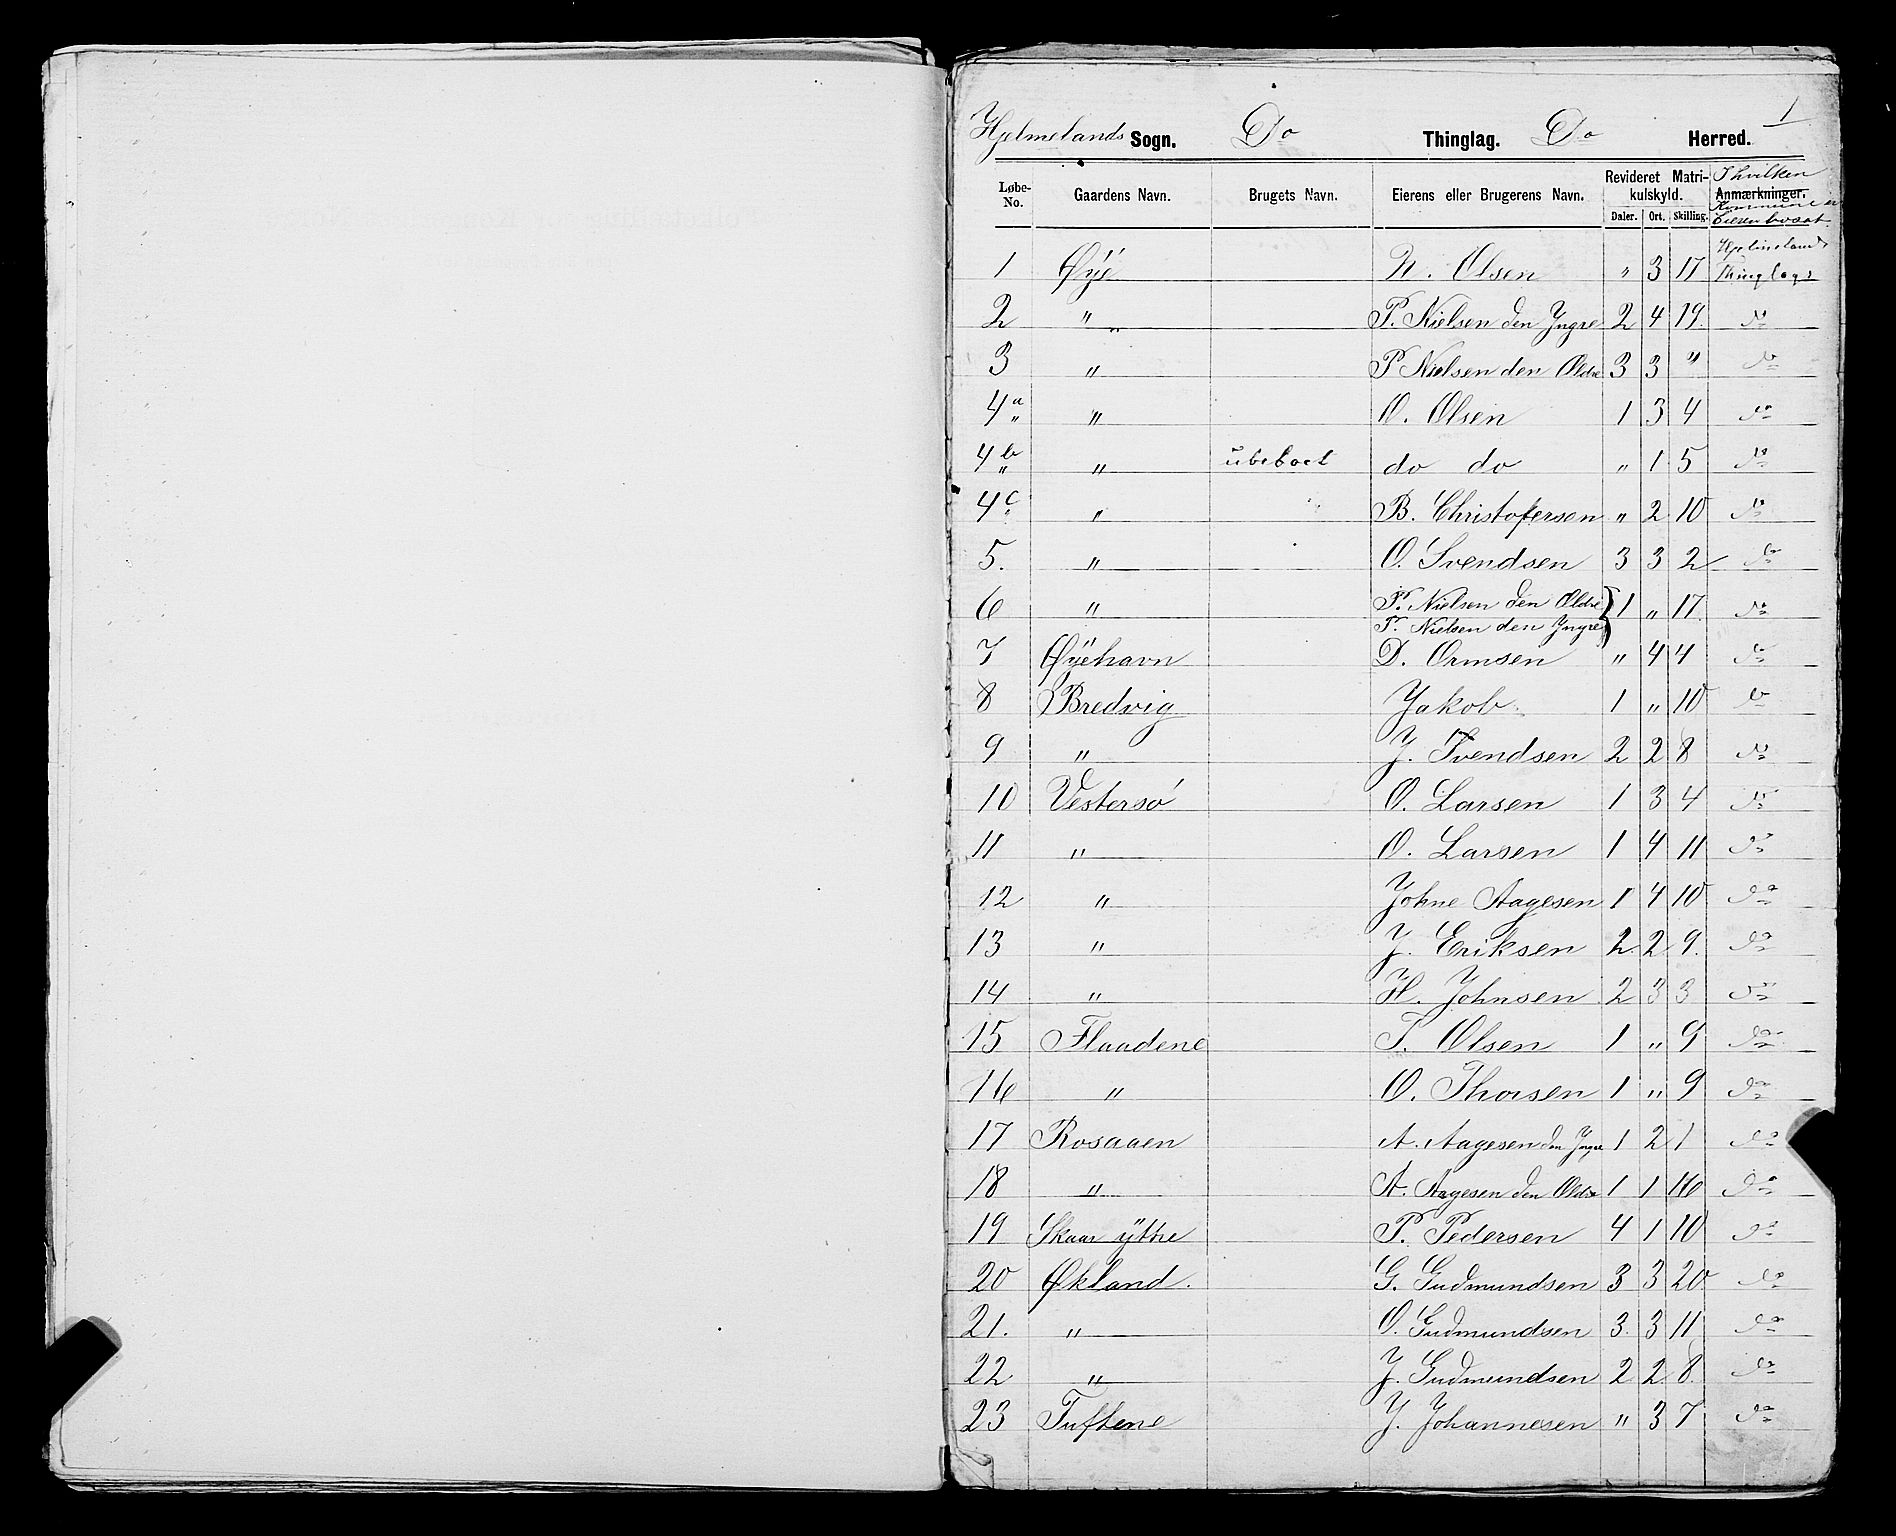 1
Hjelmelands Sogn. Do Thinglag. Do Herred.
Løbe-No. Gaardens Navn. Brugets Navn. Eierens eller Brugerens Navn. Revideret Matrikulskyld. Daler. Ort. Skilling. Anmærkninger. I hvilken Kommune er Eieren bosat
1 Øye N. Olsen " 3 17 Hjelmelands Thinglags
2 " P. Nielsen den Yngre 2 4 19. do
3 " P Nielsen den Ældre 3 3 " do
4 a " O. Olsen 1 3 4 do
4 b " ubeboet do do " 1 5 do
4 c " B. Christofersen " 2 10 do
5. " O. Svendsen 3 3 2 do
6 " P. Nielsen den Ældre P. Nielsen den Yngre } 1 " 17. do
7 Øyehavn D. Ormsen " 4 4 do
8 Bredvig Jakob 1 " 10 do
9 " J. Svendsen 2 2 8 do
10 Vestersø O. Larsen 1 3 4 do
11 " O. Larsen 1 4 11 do
12 " Johne Aagesen 1 4 10 do
13 " J. Eriksen 2. 2 9. do
14 " H. Johnsen 2 3 3 do
15 Flaadene T. Olsen 1 " 9 do
16 " O. Thorsen 1 " 9 do
17 Rosaaen A. Aagesen den Yngre 1 2 1 do
18 " A. Aagesen den Ældre 1 1 16 do
19 Skaar ÿttre P. Pedersen 4 1 10 do
20 Økland. G. Gudmundsen 3 3 20 do
21. " O. Gudmundsen 3. 3 11 do
22 " J. Gudmundsen 2 2 8 do
23 Tuftene J. Johannesen " 3 7 do